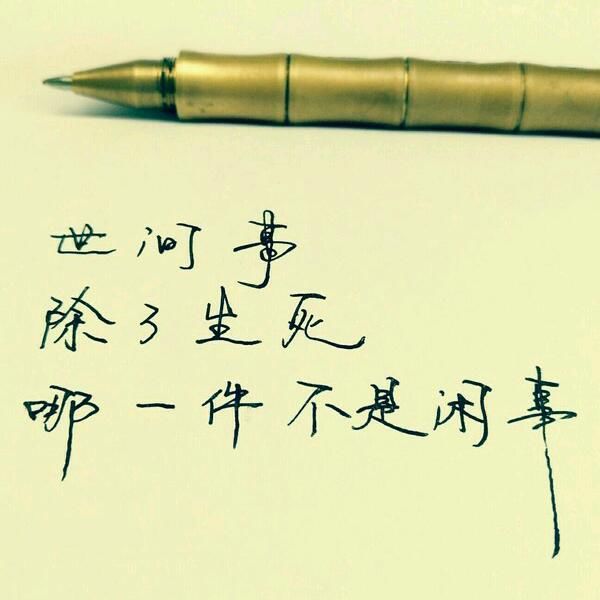 世间事
除了生死
哪一件不是闲事